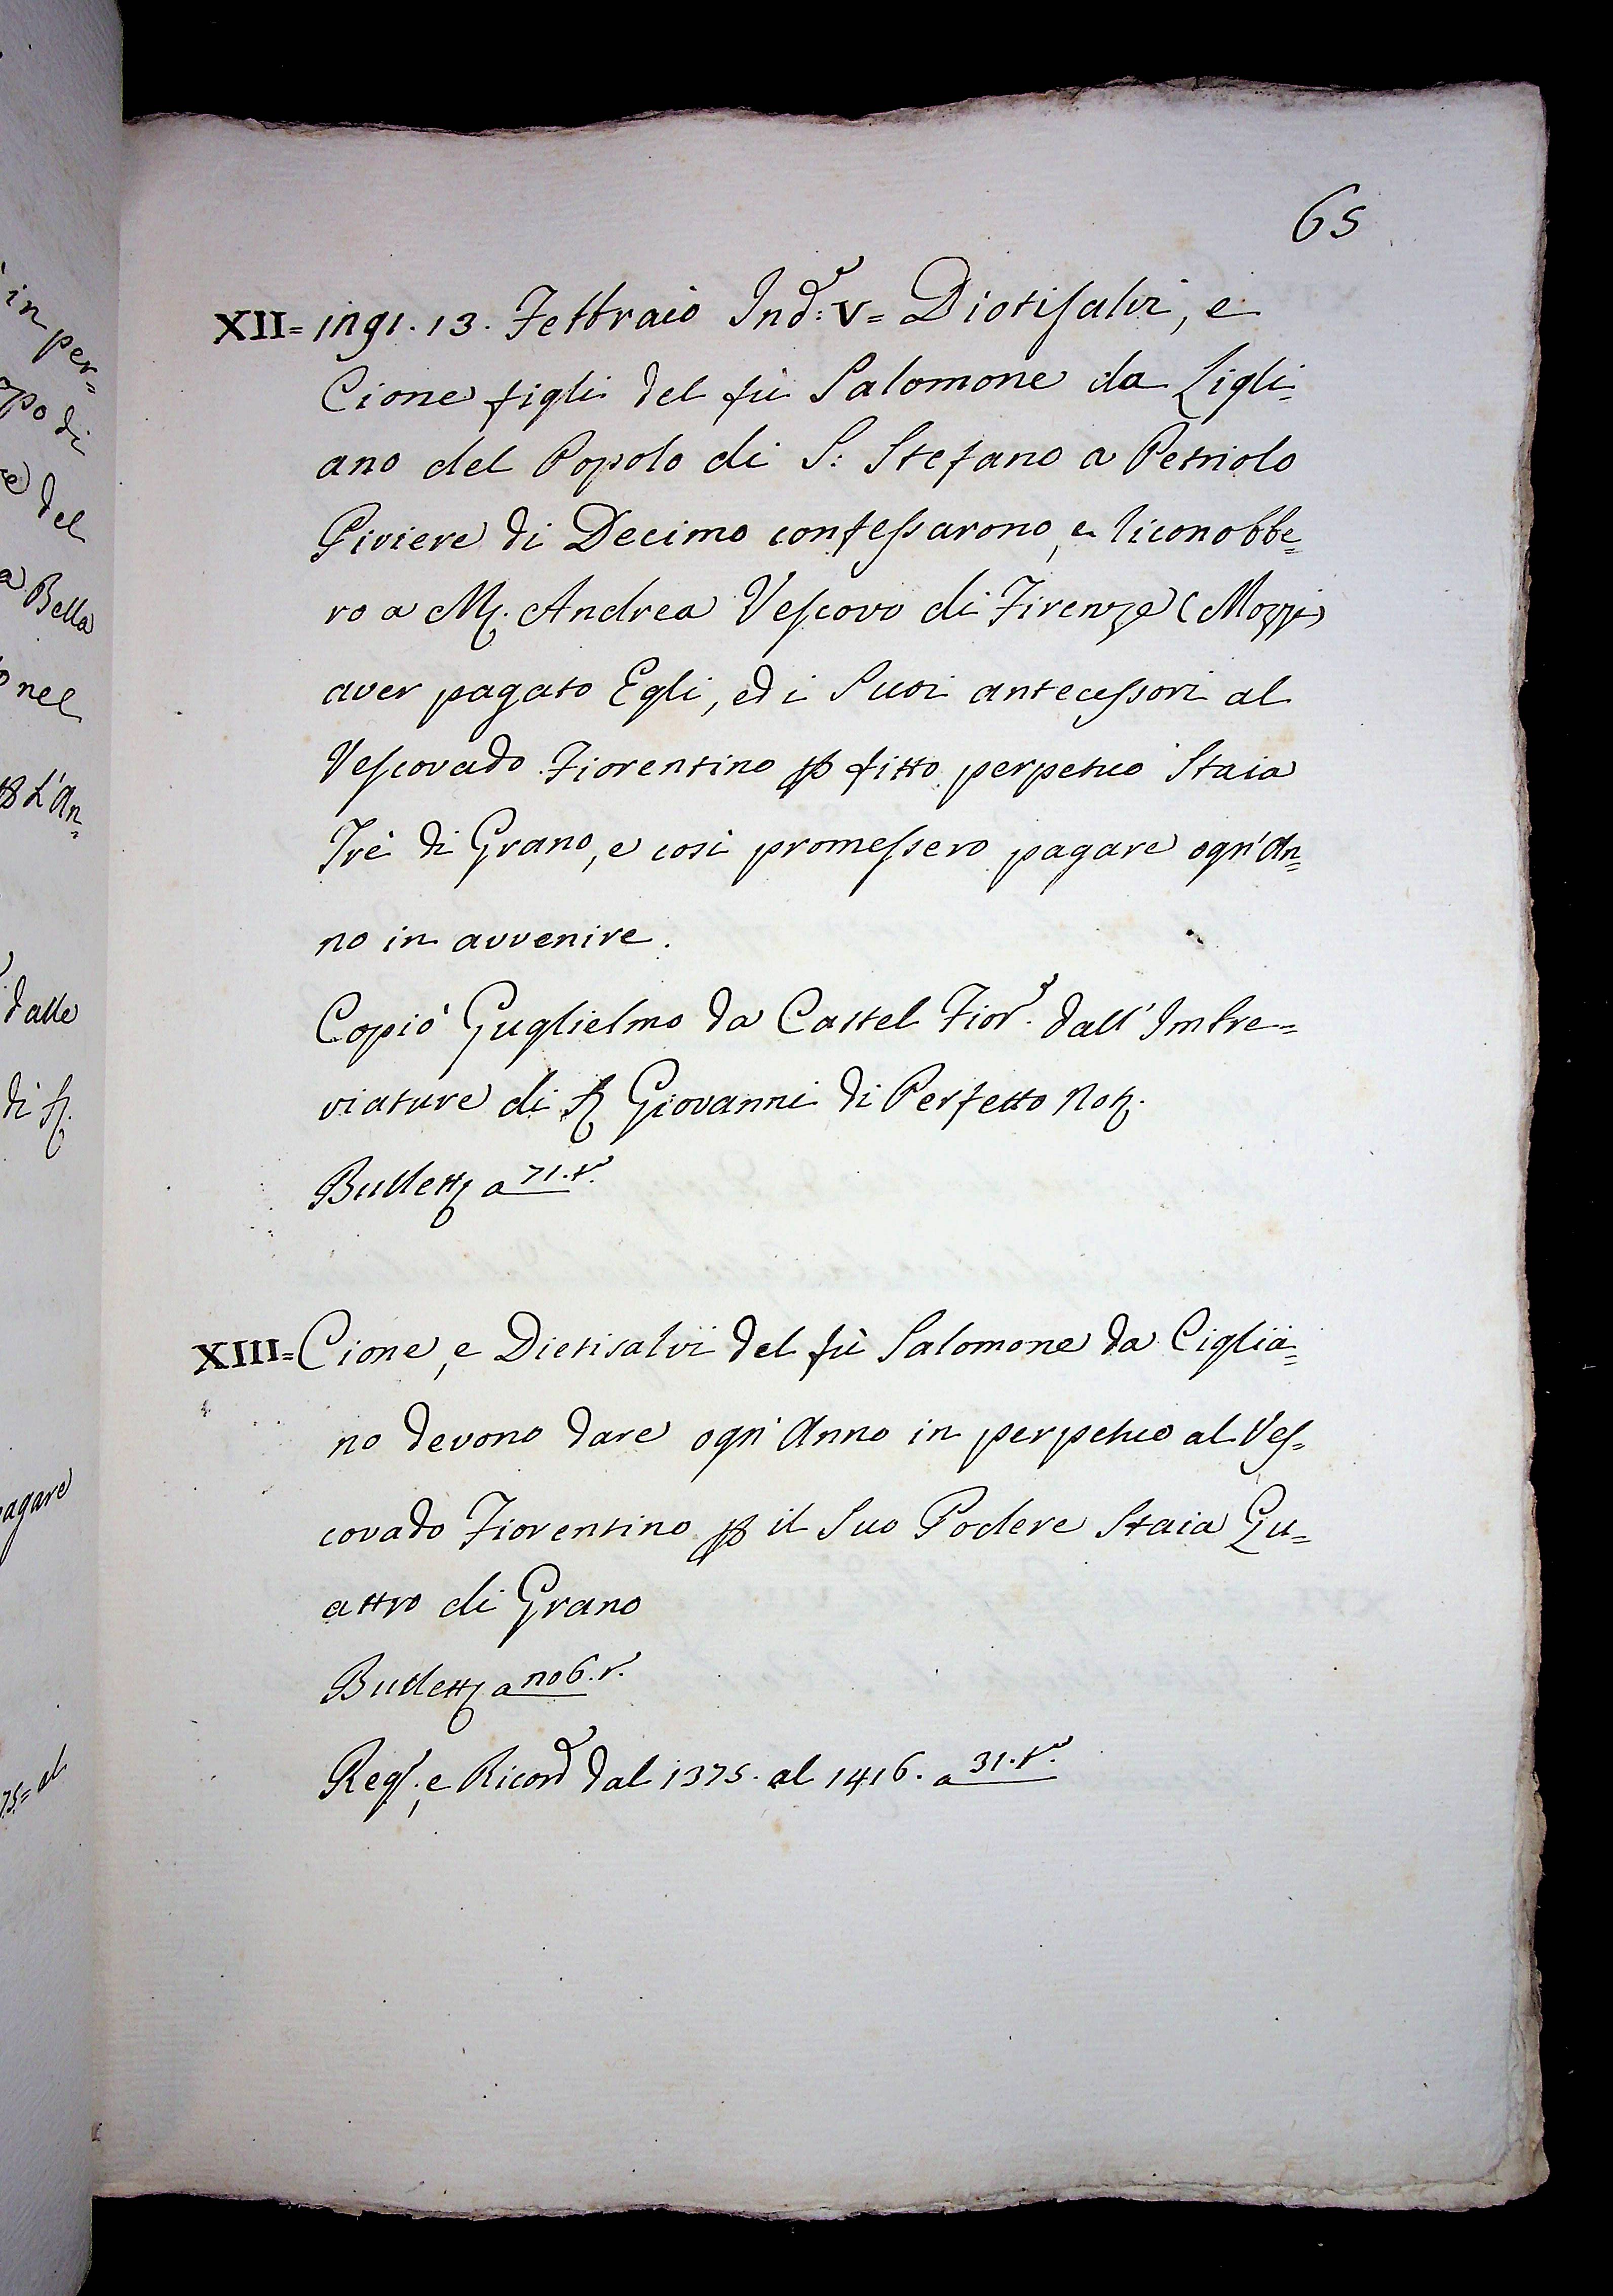 in per=
opo di
e del
a Bella
o nel
L'An=
dalle
di S.
pagare
75= al
65
XII= 1291. 13. Febbraio Ind: V= Diotisalvi, e
Cione figli del fù Salomone da Ligli=
ano del Popolo di S: Stefano a Petriolo
Piviere di Decimo confessarono, e riconobbe=
ro a M. Andrea Vescovo di Firenze (Mozzi)
aver pagato Egli, ed i Suoi antecessori al
Vescovado Fiorentino p fitto perpetuo Staia
Trè di Grano, e così promessero pagare ogn'An=
no in avvenire.
Copiò Guglielmo da Castel Fior. dall'Imbre=
viature di S Giovanni di Perfetto Not.
Bullett a 71. t.
XIII= Cione, e Dietisalvi del fù Salomone da Ciglia=
no devono dare ogn'Anno in perpetuo al Ves=
covado Fiorentino p il Suo Podere Staia Qu=
attro di Grano
Bullett a 206. r.
Reg. e Ricord dal 1375. al 1416. a 31. t.